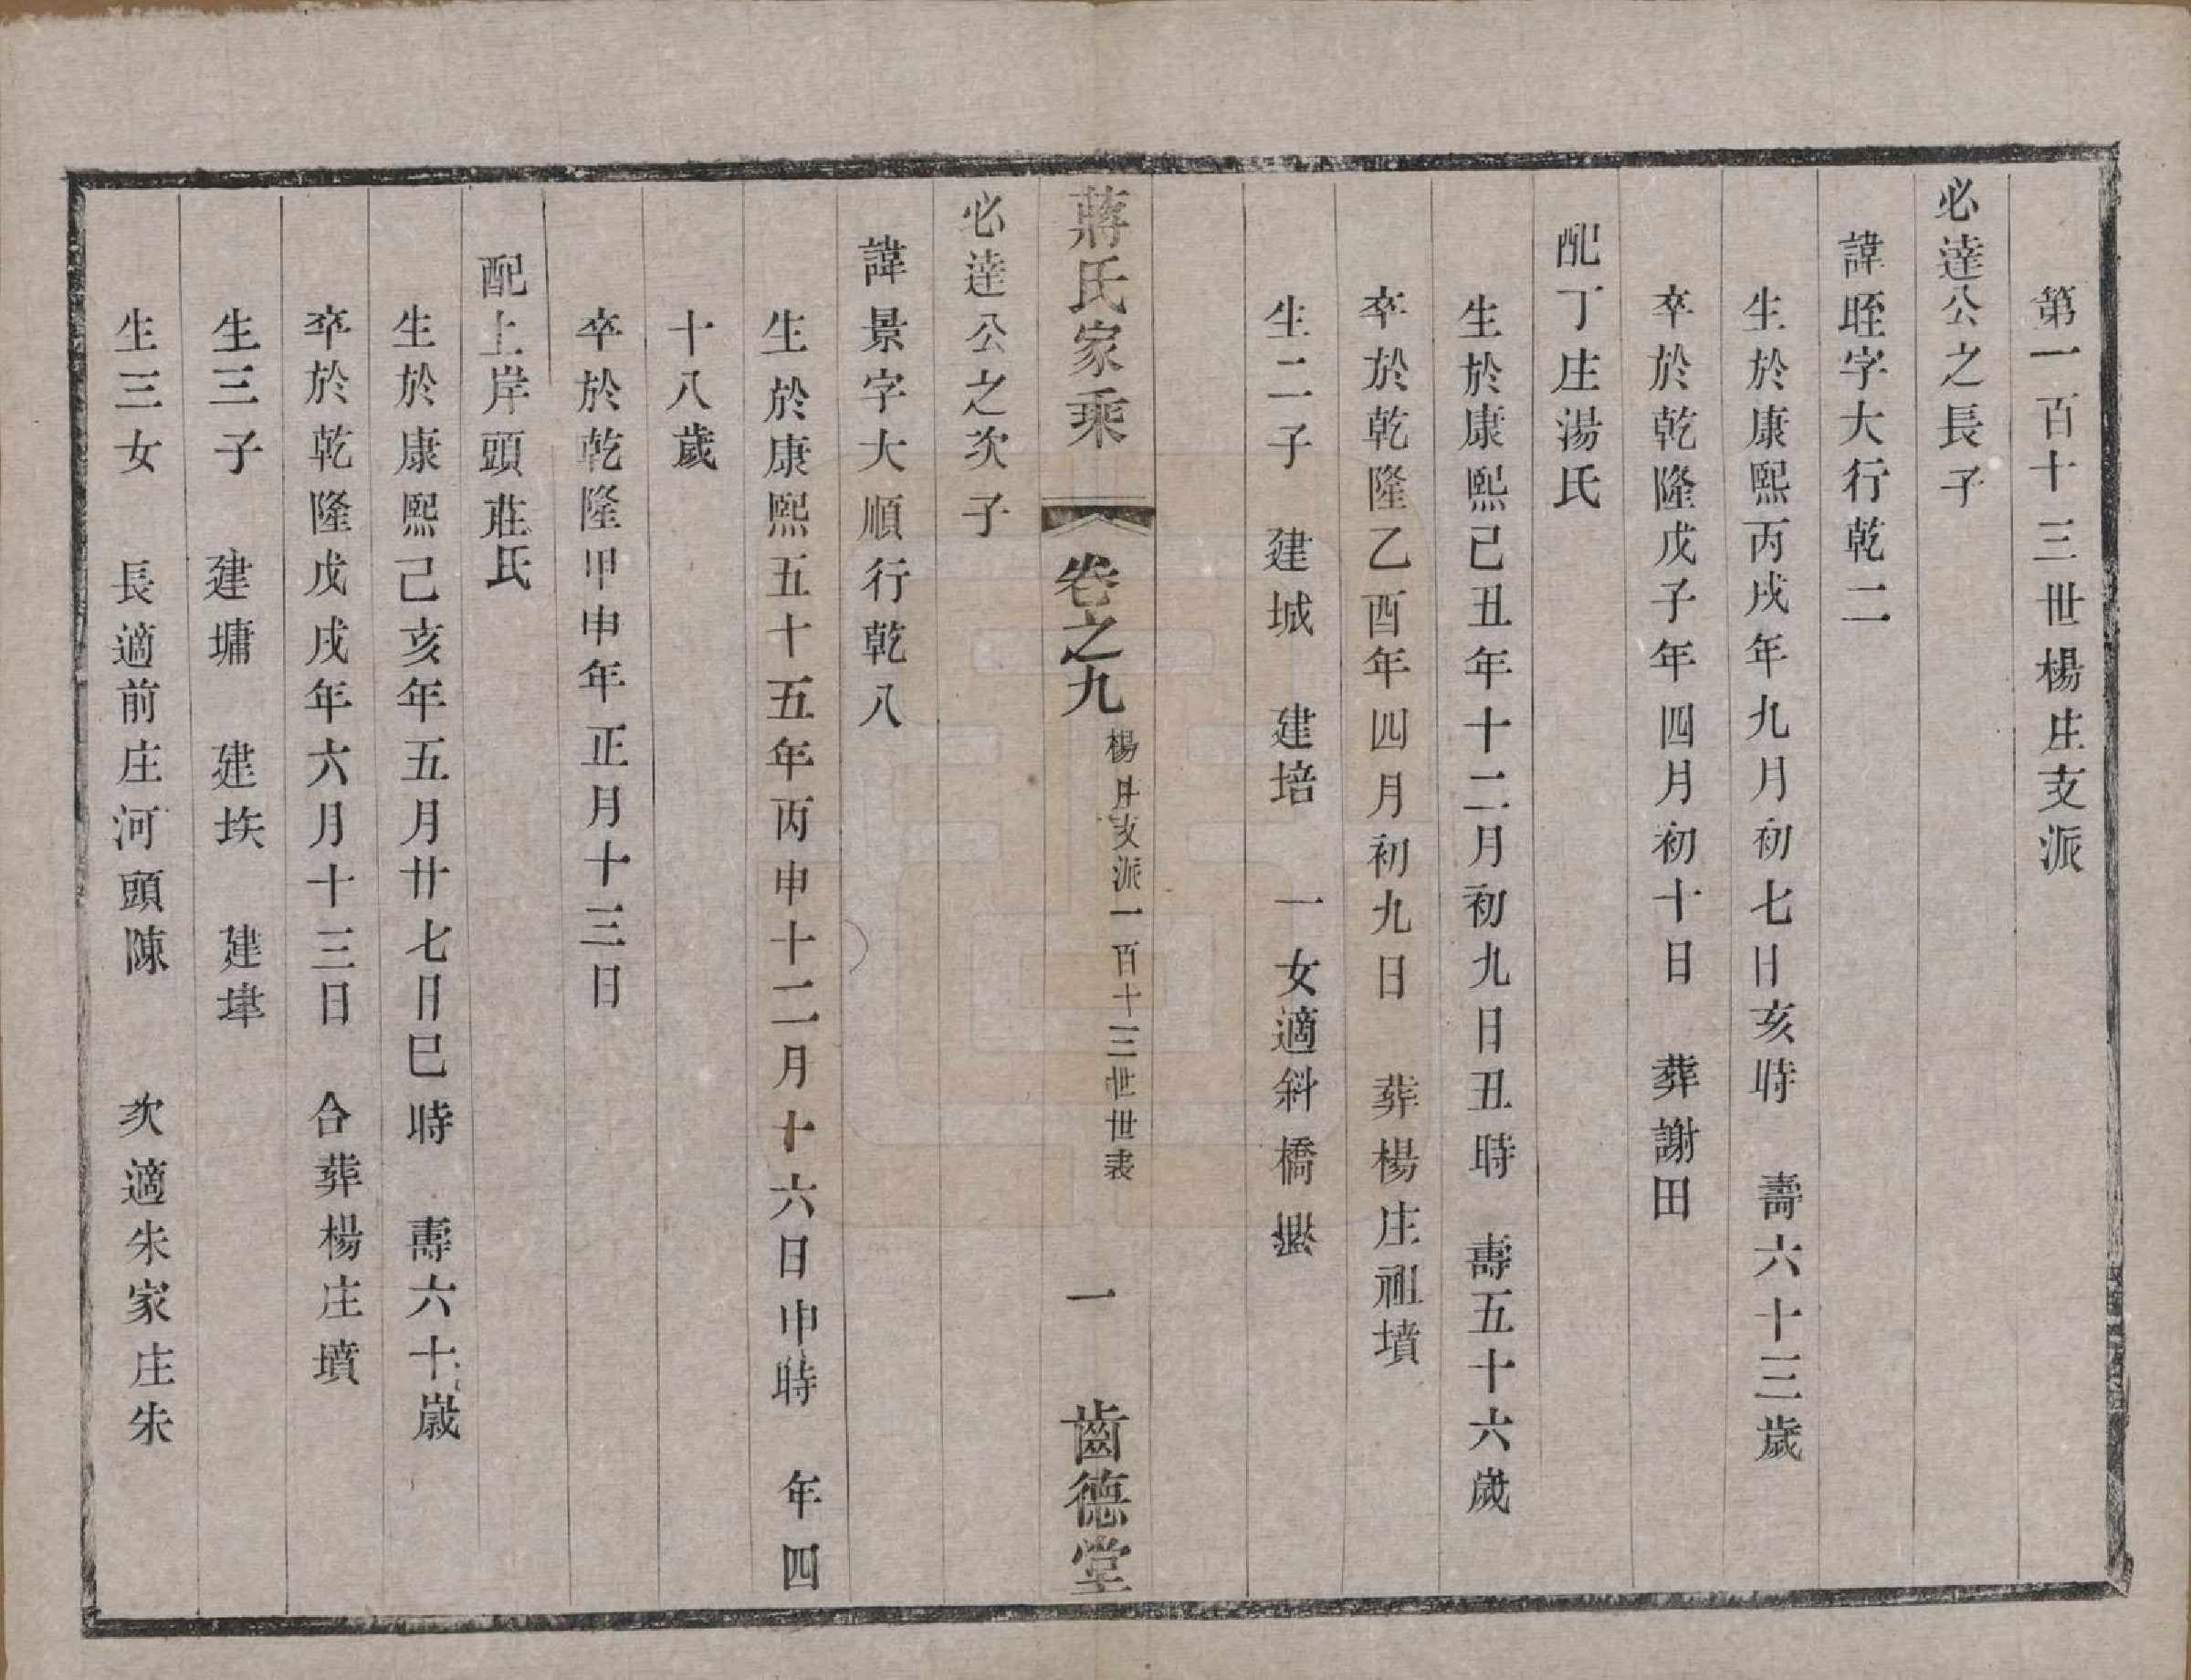 第一百十三世楊庄支派
必達公之長子
諱晊字大行乾二
生於康熙丙戌年九月初七日亥時　壽六十三歲
卒於乾隆戊子年四月初十日　葬謝田
配丁庄湯氏
生於康熙己丑年十二月初九日丑時　壽五十六歲
卒於乾隆乙酉年四月初九日　葬楊庄祖墳
生二子　建城　建培　一女適斜橋
蔣氏家乘　卷之九　楊庄支派一百十三世世表　一　齒德堂
必達公之次子
諱景字大順行乾八
生於康熙五十五年丙申十二月十六日申時　年四
十八歲
卒於乾隆甲申年正月十三日
配上岸頭莊氏
生於康熙己亥年五月廿七日巳時　壽六十歲
卒於乾隆戊戌年六月十三日　合葬楊庄墳
生三子　建墉　建垁　建垏
生三女　長適前庄河頭陳　次適朱家庄朱